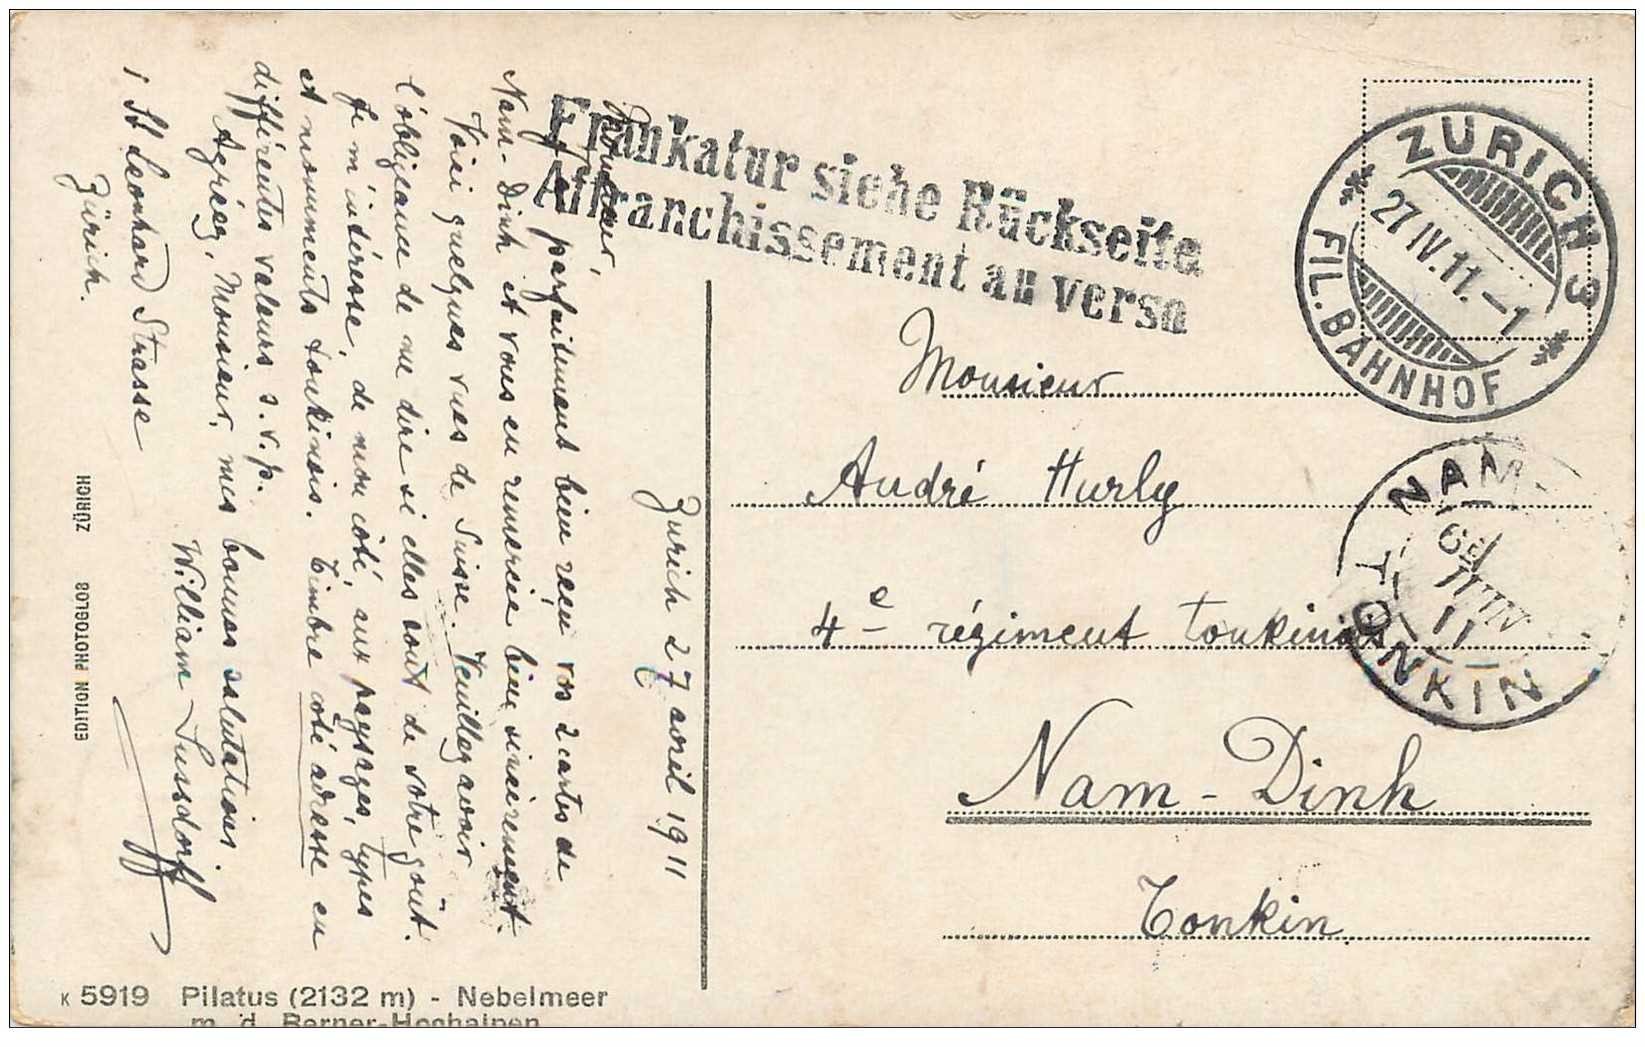 Zurich 27 avril 1911
Monsieur,
J'ai parfaitement bien reçu vos 2 cartes de
Nam-Dinh et vous en remercie bien sincèrement.
Voici quelques vues de Suisse. Veuillez avoir
l'obligeance de me dire si elles sont de votre goût.
Je m'intéresse, de mon côté, aux paysages, types
et monuments tonkinois. Timbre côté adresse en
différentes valeurs s.v.p.
Agréez, Monsieur, mes bonnes salutations.
William
1 St Leonhard Strasse
Zürich.
EDITION PHOTOGLOB ZÜRICH
K 5919 Pilatus (2132 m) - Nebelmeer
m. d. Berner-Hochalpen
Frankatur siehe Rückseite
Affranchissement au verso
ZÜRICH 3
27 IV. 11. - 1
FIL. BAHNHOF
NAM-
JUIN
11
TONKIN
Monsieur
André Hurly
4e régiment tonkinois
Nam-Dinh
Tonkin